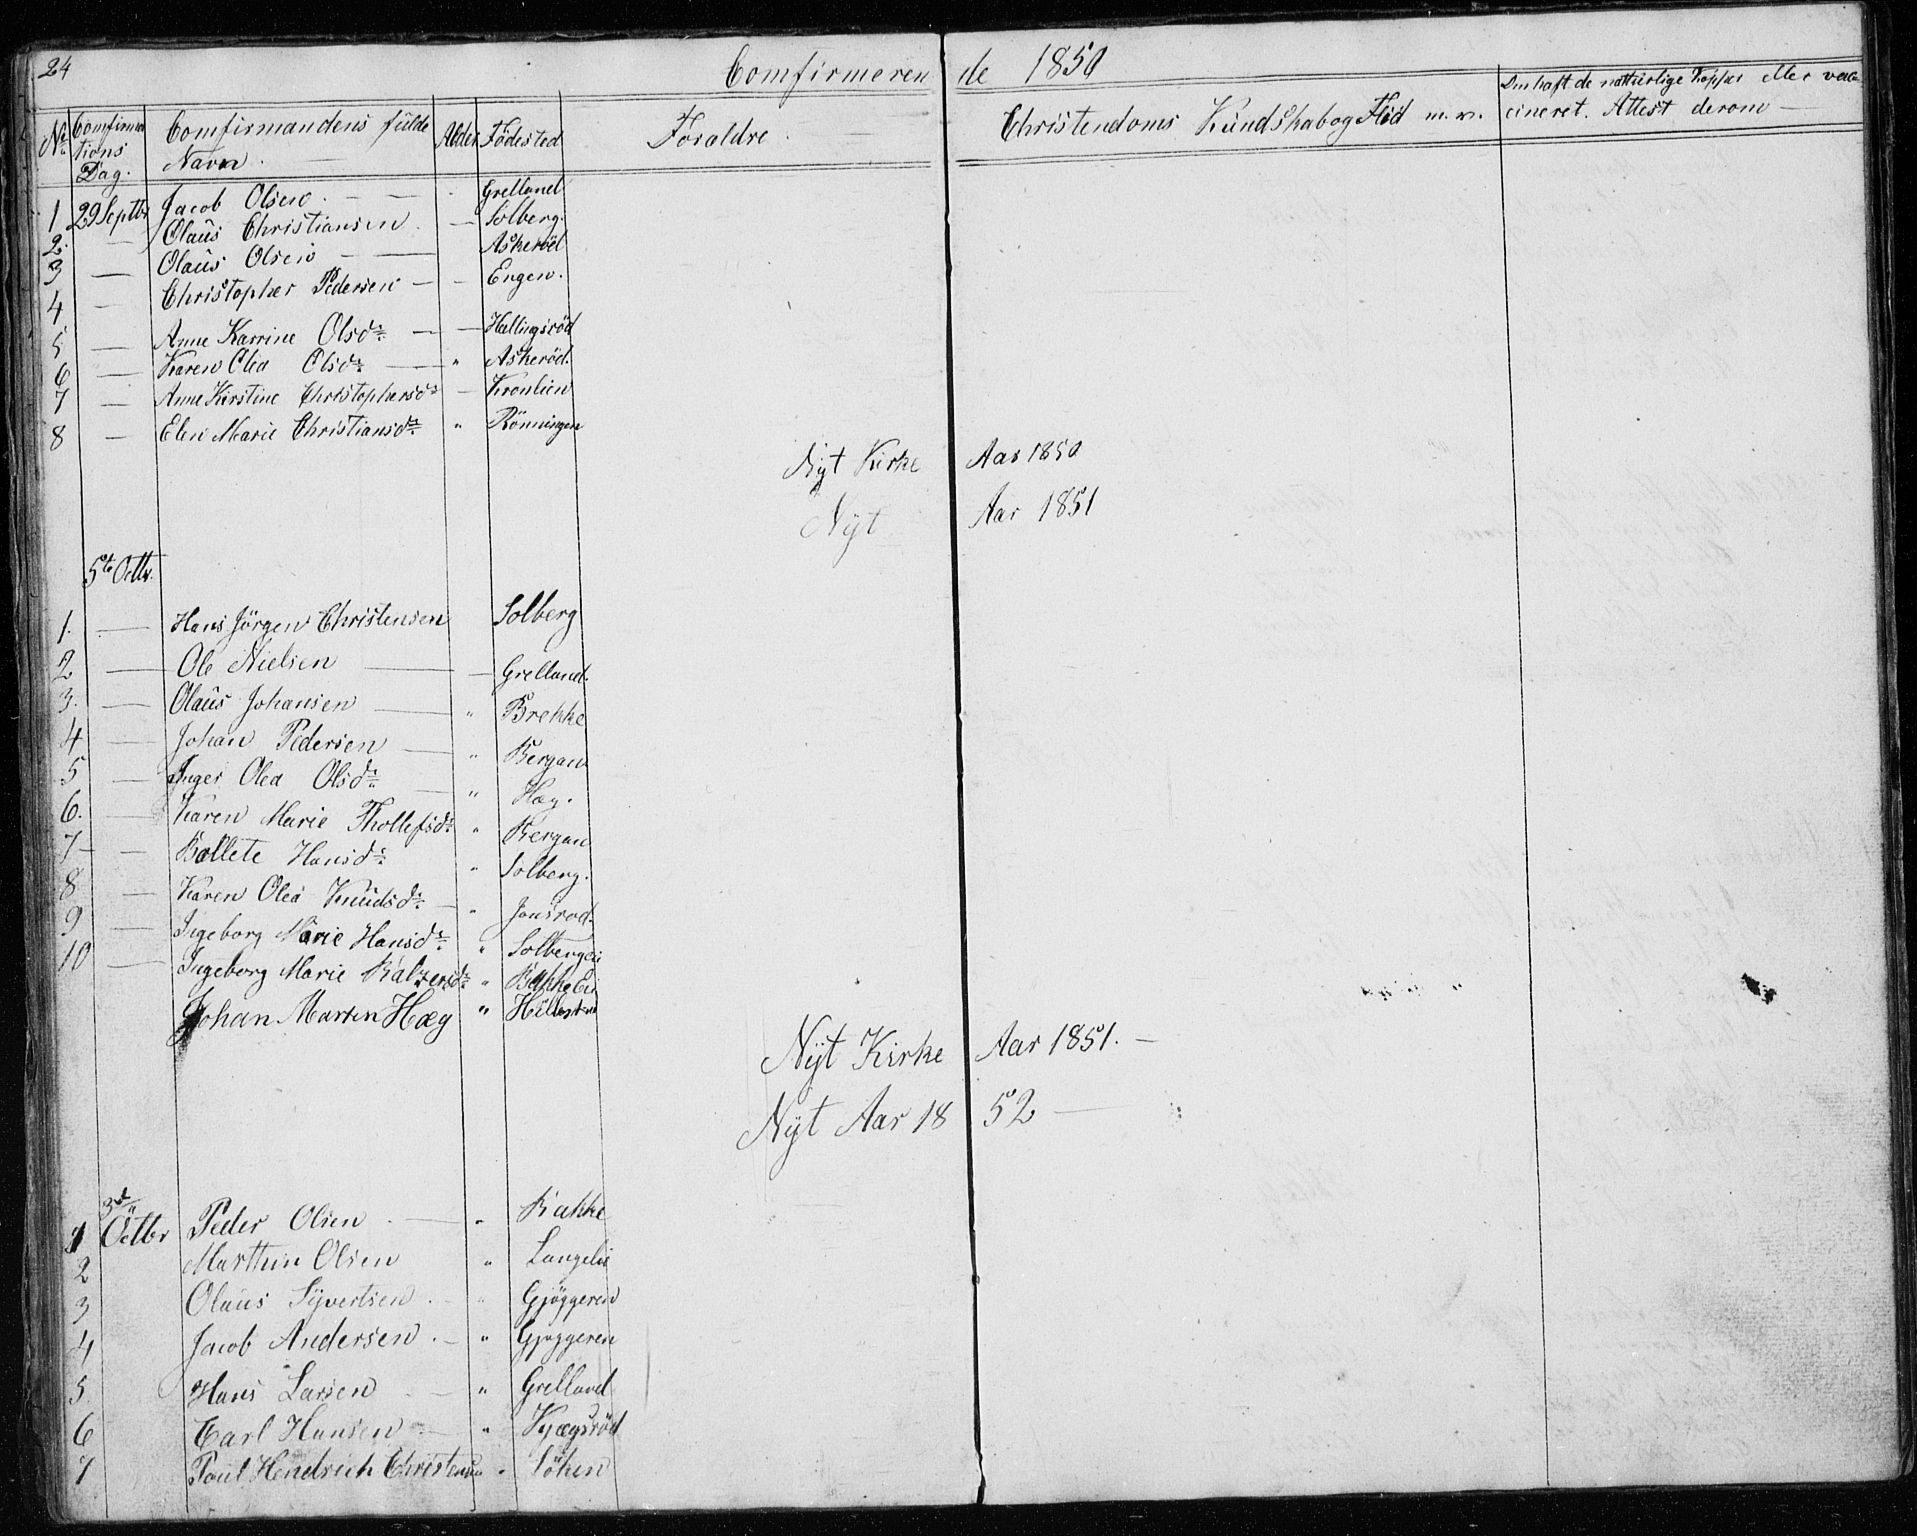 24
Comfirmerende 1850
No Comfirmations Dag. Comfirmandens fulde Navn Alder Födested Foraldre Christendoms Kundskab og Flid m. v. Om haft de natturlige Kopper eller vaccineret. Attest derom —
1 29 Septbr Jacob Olsen. — — Grelland
2. — Olaus Christiansen — Solberg.
3 — Olaus Olsen — — Askeröd
4 — Christopher Pedersen — — Engen.
5 — Anne Karrine Olsdr — — Hallingsröd
6 — Karen Olea Olsdr — " Askeröd.
7 — Anne Kirstine Christophersdr — Kronlien
8 — Elen Marie Christiansdr " Rönningen
Nyt Kirke Aar 1850
Nyt Aar 1851
5te Octbr.
1. — Hans Jörgen Christensen Solberg
2 — Ole Nielsen — — Grelland.
3. — Olaus Johansen — " Brekke
4 — Johan Pedersen — " Bergan
5 — Inger Olea Olsdr — " Hæg.
6. — Karen Marie Thollefsdr " Bergan
7 — — Bollete Hansdr " Solberg.
8 — Karen Olea Knudsdr — " Jonsrod.
9 — Ingeborg Marie Hansdr " Solbergei
10 — Ingeborg Marie Balzersdr " Bakke Ei
Johan Marten Hæg "
Nyt Kirke Aar 1851. —
Nyt Aar 1852 —
3de
1 Octbr Peder Olsen — " Bakke
2 Marthin Olsen " Langelie
3 Olaus Syvertsen. — " Gjöggeren
4 Jacob Andersen. — " Gjoggeren
5. Hans Larsen — " Grelland
6 Carl Hansen — " Kjægsröd
7 Poul Hendrich Christensen " Söken